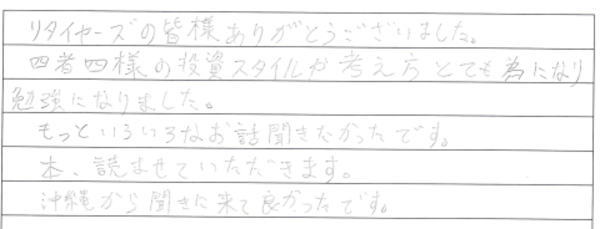 リタイヤーズの皆様ありがとうございました。
四者四様の投資スタイルが考え方とても為になり
勉強になりました。
もっといろいろなお話聞きたかったです。
本、読ませていただきます。
沖縄から聞きに来て良かったです。